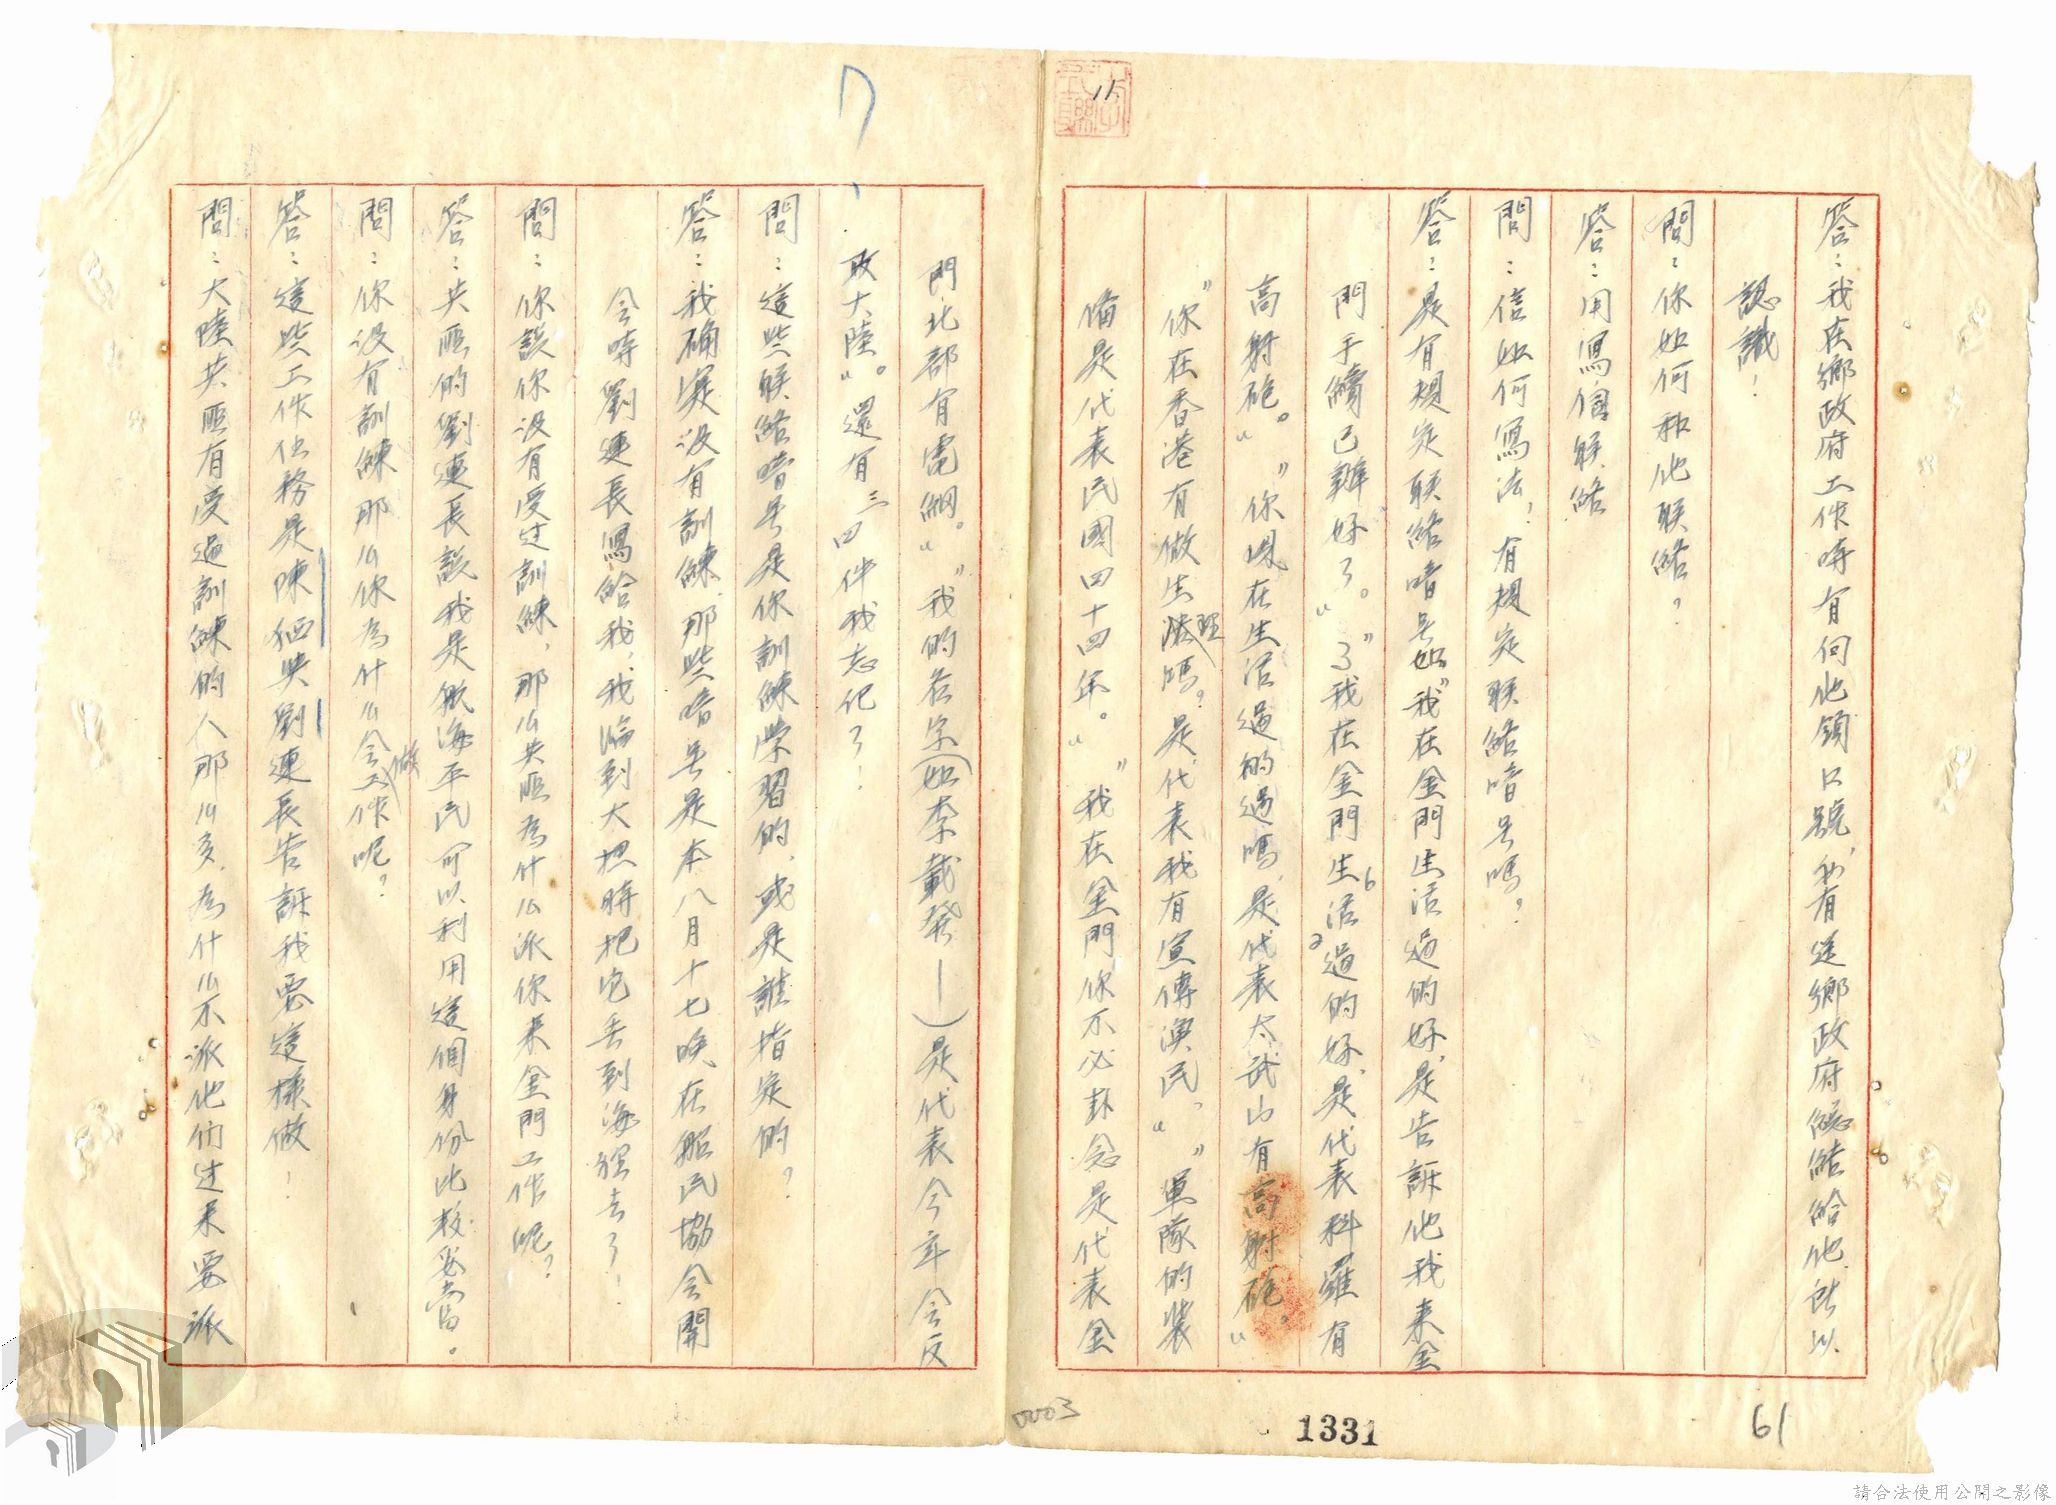 11
答：我在鄉政府工作時有向他領口號，我有從鄉政府總結給他所以
認識！
問：你如何和他联絡？
答：用寫信联絡
問：信如何寫法，有規定联絡暗号嗎？
答：是有規定联絡暗号如"我在金門生活過的好"是告訴他我来金
門手續已辦好了。"了"我在金門生活過的好"是代表料羅有
高射砲。""你現在生活過的過嗎"是代表太武山有高射砲。"
"你在香港有做生理嗎？是代表我有宣傳漁民，""軍隊的裝
備是代表民國四十四年。""我在金門你不必卦念是代表金
門北部有電網。""我的名字（如李載發—）是代表今年会反
攻大陸"。還有三四件我忘記了！
問：這些联絡暗号是你訓練学習的，或是誰指定的？
答：我确寔没有訓練，那些暗号是本八月十七晚在船民協会開
会時劉連長寫給我，我論到大担時把它丢到海裡去了！
問：你説你没有受过訓練，那么共匪為什么派你来金門工作呢？
答：共匪的劉連長説我是漁海平民可以利用這個身份比校妥當。
問：你没有訓練那么你為什么会做工作呢？
答：這些工作任務是陳栖與劉連長告訴我要這様做！
問：大陸共匪有受過訓練的人那么多，為什么不派他們过来要派
0003
1331
61
請合法使用公開之影像